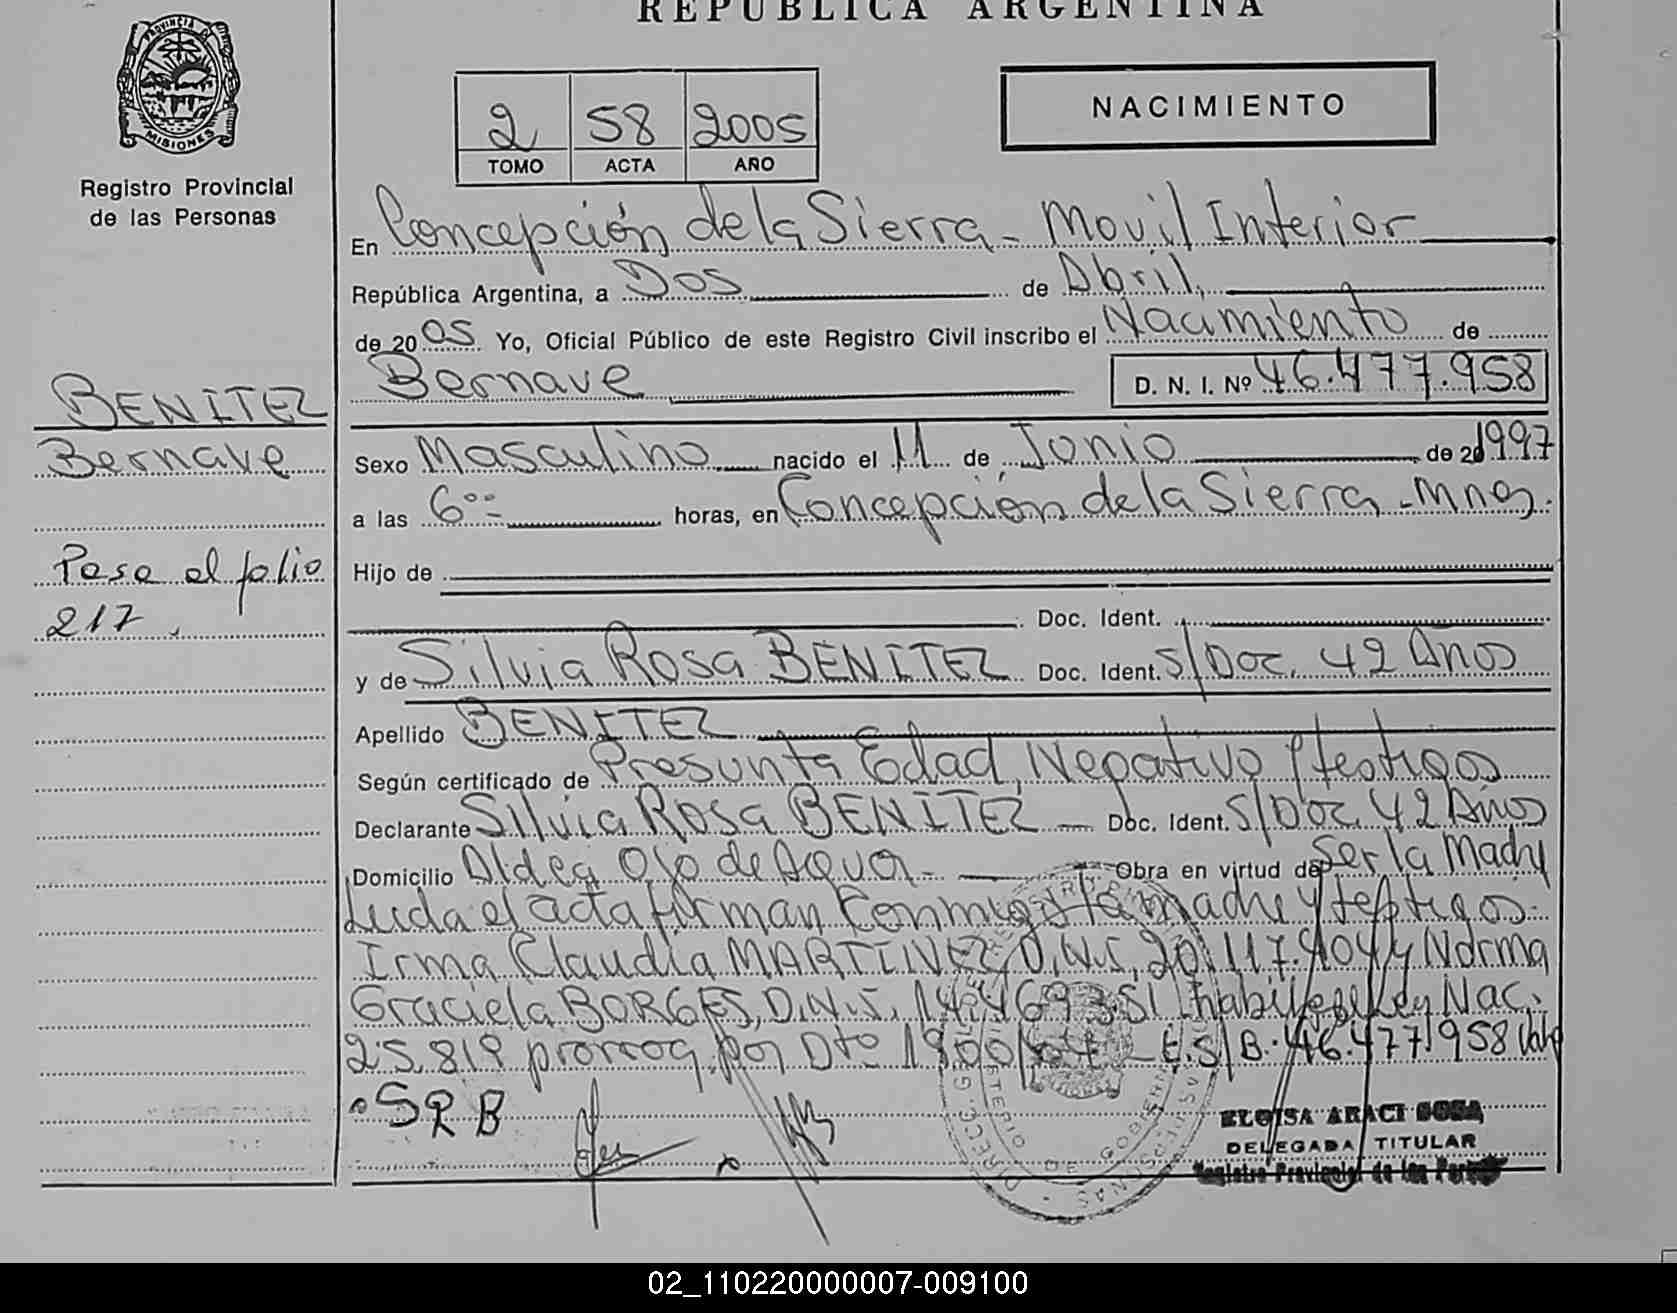 REPUBLICA ARGENTINA
PROVINCIA DE
MISIONES
Registro Provincial
de las Personas
2 58 2005
TOMO ACTA AÑO
NACIMIENTO
En Concepción de la Sierra - Movil Interior
República Argentina, a Dos de Abril,
de 2005. Yo, Oficial Público de este Registro Civil inscribo el Nacimiento de
Bernave D. N. I. Nº 46.477.958
BENITEZ
Bernave
Pasa al folio
217.
Sexo Masculino nacido el 11 de Junio de 20 1997
a las 6°°- horas, en Concepción de la Sierra - Mnes.
Hijo de
Doc. Ident.
y de Silvia Rosa BENITEZ Doc. Ident. S/Doc. 42 Años
Apellido BENITEZ
Según certificado de Presunta Edad, Negativo y testigos
Declarante Silvia Rosa BENITEZ - Doc. Ident. S/Doc 42 Años
Domicilio Aldea Ojo de Agua - Obra en virtud de ser la Madre
Leida el acta firman conmigo la madre y testigos:
Irma Claudia MARTINEZ, D.N.I. 20.117.404 y Norma
Graciela BORGES, D.N.I. 14.469351 Ley Nac.
25.819 prorrog. por Dto 1900/04 - E.S/B: 46.477.958 Vale
SRB
ELOISA ARACI SOSA
DELEGADA TITULAR
Registro Provincial de las Personas
02_110220000007-009100